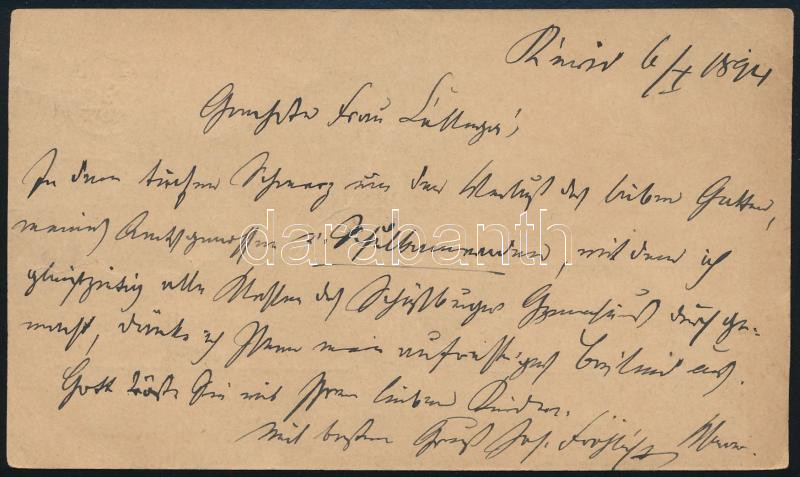 6/X 1894
Geehrte Frau
In dem tiefen Schmerz um den Verlust des lieben Gatten,
meines Amtsgenossen u. Schulkameraden, mit dem ich
gleichzeitig alle Klassen des Schäßburger Gymnasiums durchge-
macht, drücke ich Ihnen mein aufrichtiges Beileid aus.
Gott tröste Sie mit Ihren lieben Kindern.
Mit bestem Gruß Joh. Fröhlich
darabanth